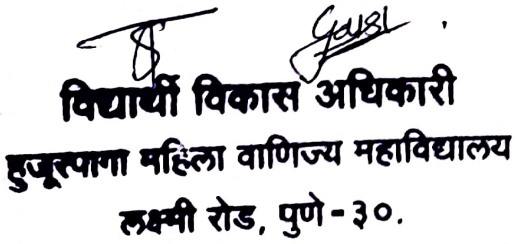 विद्यार्थी विकास अधिकारी
हुजूरपागा महिला वाणिज्य महाविद्यालय
लक्ष्मी रोड, पुणे-३०.